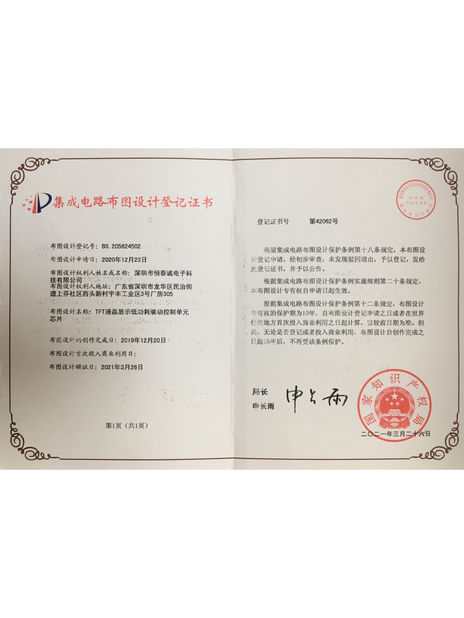 集成电路布图设计登记证书
布图设计登记号：BS. 205624502
布图设计申请日：2020年12月23日
布图设计权利人姓名或名称：深圳市恒泰诚电子科
技有限公司
布图设计权利人地址：广东省深圳市龙华区民治街
道上芬社区西头新村宇丰工业区3号厂房305
布图设计名称：TFT液晶显示低功耗驱动控制单元
芯片
布图设计的创作完成日：2019年12月20日
布图设计首次投入商业利用日：
布图设计颁证日：2021年3月26日
第1页（共1页）
登记证书号 第42062号
根据集成电路布图设计保护条例第十八条规定，本布图设
计登记申请，经初步审查，未发现驳回理由，予以登记，发给
此登记证书，并予以公告。
根据集成电路布图设计保护条例实施细则第二十条规定，
本布图设计专有权自申请日起生效。
根据集成电路布图设计保护条例第十二条规定，布图设计
专有权的保护期为10年，自布图设计登记申请之日或者在世界
任何地方首次投入商业利用之日起计算，以较前日期为准。但
此，无论是否登记或者投入商业利用，布图设计自创作完成之
日起15年后，不再受该条例保护。
局长
申长雨
申长雨
国家知识产权局
二〇二一年三月二十六日